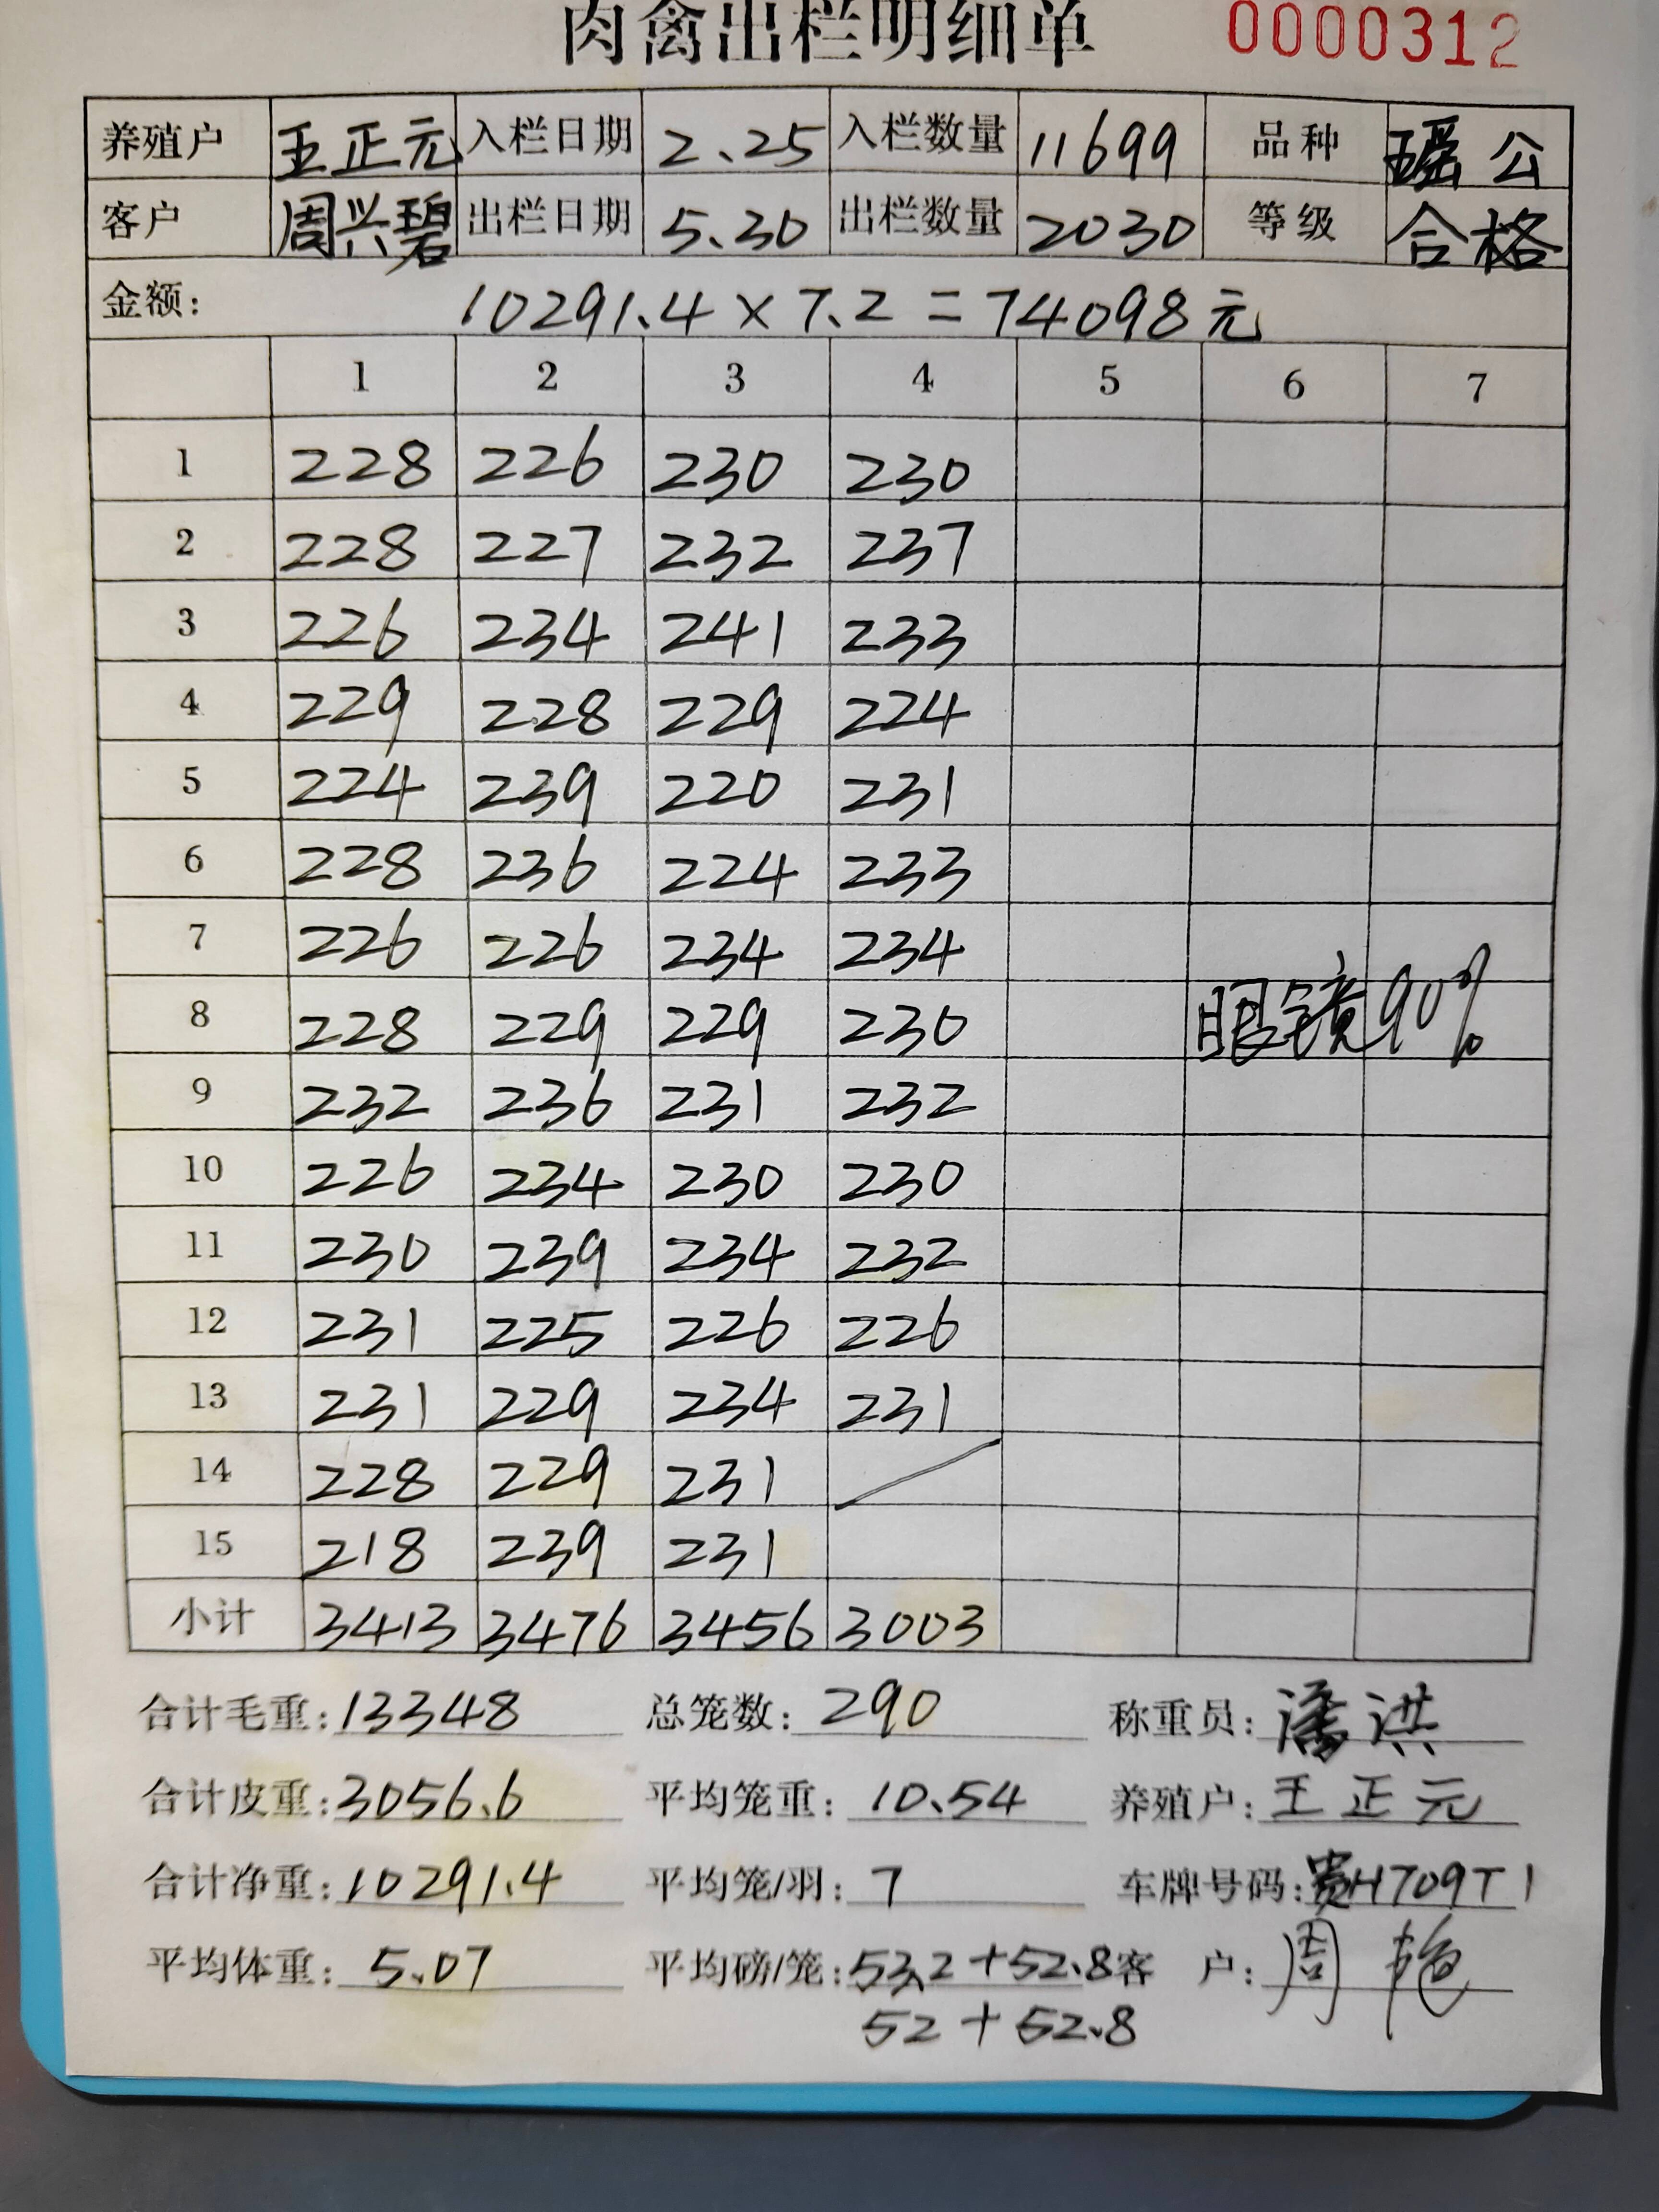 肉禽出栏明细单 0000312
养殖户 王正元 入栏日期 2.25 入栏数量 11699 品种 瑶公
客户 周兴碧 出栏日期 5.30 出栏数量 2030 等级 合格
金额: 10291.4×7.2=74098元
1 2 3 4 5 6 7
1 228 226 230 230
2 228 227 232 237
3 226 234 241 233
4 229 228 229 224
5 224 239 220 231
6 228 236 224 233
7 226 226 234 234
8 228 229 229 230 眼镜90%
9 232 236 231 232
10 226 234 230 230
11 230 239 234 232
12 231 225 226 226
13 231 229 234 231
14 228 229 231
15 218 239 231
小计 3413 3476 3456 3003
合计毛重:13348 总笼数:290 称重员:潘洪
合计皮重:3056.6 平均笼重:10.54 养殖户:王正元
合计净重:10291.4 平均笼/羽:7 车牌号码:贵H709T1
平均体重:5.07 平均磅/笼:53.2+52.8 客户:周艳
52+52.8